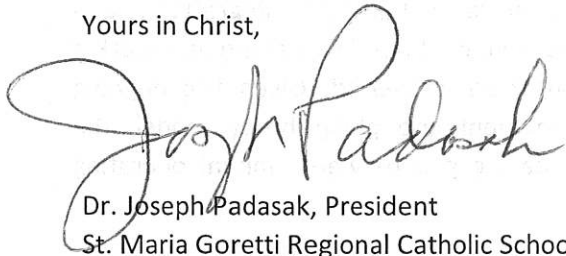 Yours in Christ,
Joseph Padasak
Dr. Joseph Padasak, President
St. Maria Goretti Regional Catholic Schoo